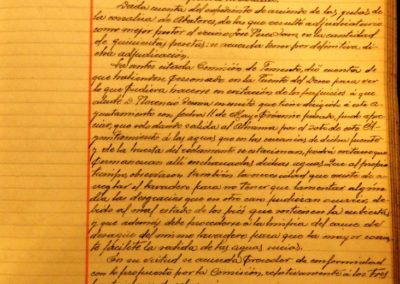 Dada cuenta del expediente de arriendo de los pastos de
la corraliza de Abatores, de la que resultó adjudicatario
como mejor postor el vecino José Roca
en la cantidad
de quinientas pesetas, se acuerda hacer por definitiva di-
cha adjudicación.
La antes citada Comisión de Fomento, dió cuenta de
que habiéndose personado en la Fuente del para ver
lo que pudiera hacerse en evitación de los perjuicios á que
alude D. Florencio en escrito que tiene dirigido á este a-
yuntamiento con fecha 11 de Mayo próximo pasado, pudo apre-
ciar, que solo dando salida al Alhama por el soto de este Sr.
á las aguas que en las avenidas de dicha fuente
y de la huerta del vedamente se estacionan, podría evitarse que
permanezcan allí enchancadas dichas aguas. Que al propio
tiempo observaron también la necesidad que existe de a-
rreglar el lavadero para no tener que lamentar algún
día las desgracias que en otro caso pudieran ocurrir de-
bido al mal estado de los piés que sostienen la cubierta,
y que además debe procederse á la limpia del cauce del
desagüe del mismo lavadero para que la mayor corrien-
te facilite la salida de las aguas sucias.
En su virtud se acuerda proceder de conformidad
con lo propuesto por la Comisión, respectivamente á los tres